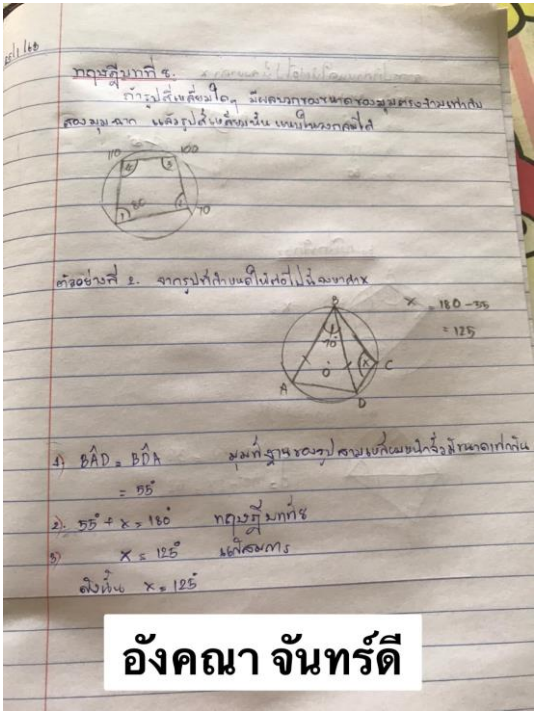 ทฤษฎีบทที่ 8.
ถ้ารูปสี่เหลี่ยมใดๆ มีผลบวกของขนาดของมุมตรงข้ามเท่ากับ
สองมุมฉาก แล้วรูปสี่เหลี่ยมนั้นแนบในวงกลมได้
110 100
80 70
ตัวอย่างที่ 2. จากรูปที่กำหนดให้ต่อไปนี้จงหาค่า x
B
70° x
O
A D C
x = 180 - 55
= 125
1) BÂD = BD̂A มุมที่ฐานของรูปสามเหลี่ยมหน้าจั่วมีขนาดเท่ากัน
= 55°
2). 55° + x = 180° ทฤษฎีบทที่8
3) x = 125° แก้สมการ
ดังนั้น x = 125°
อังคณา จันทร์ดี